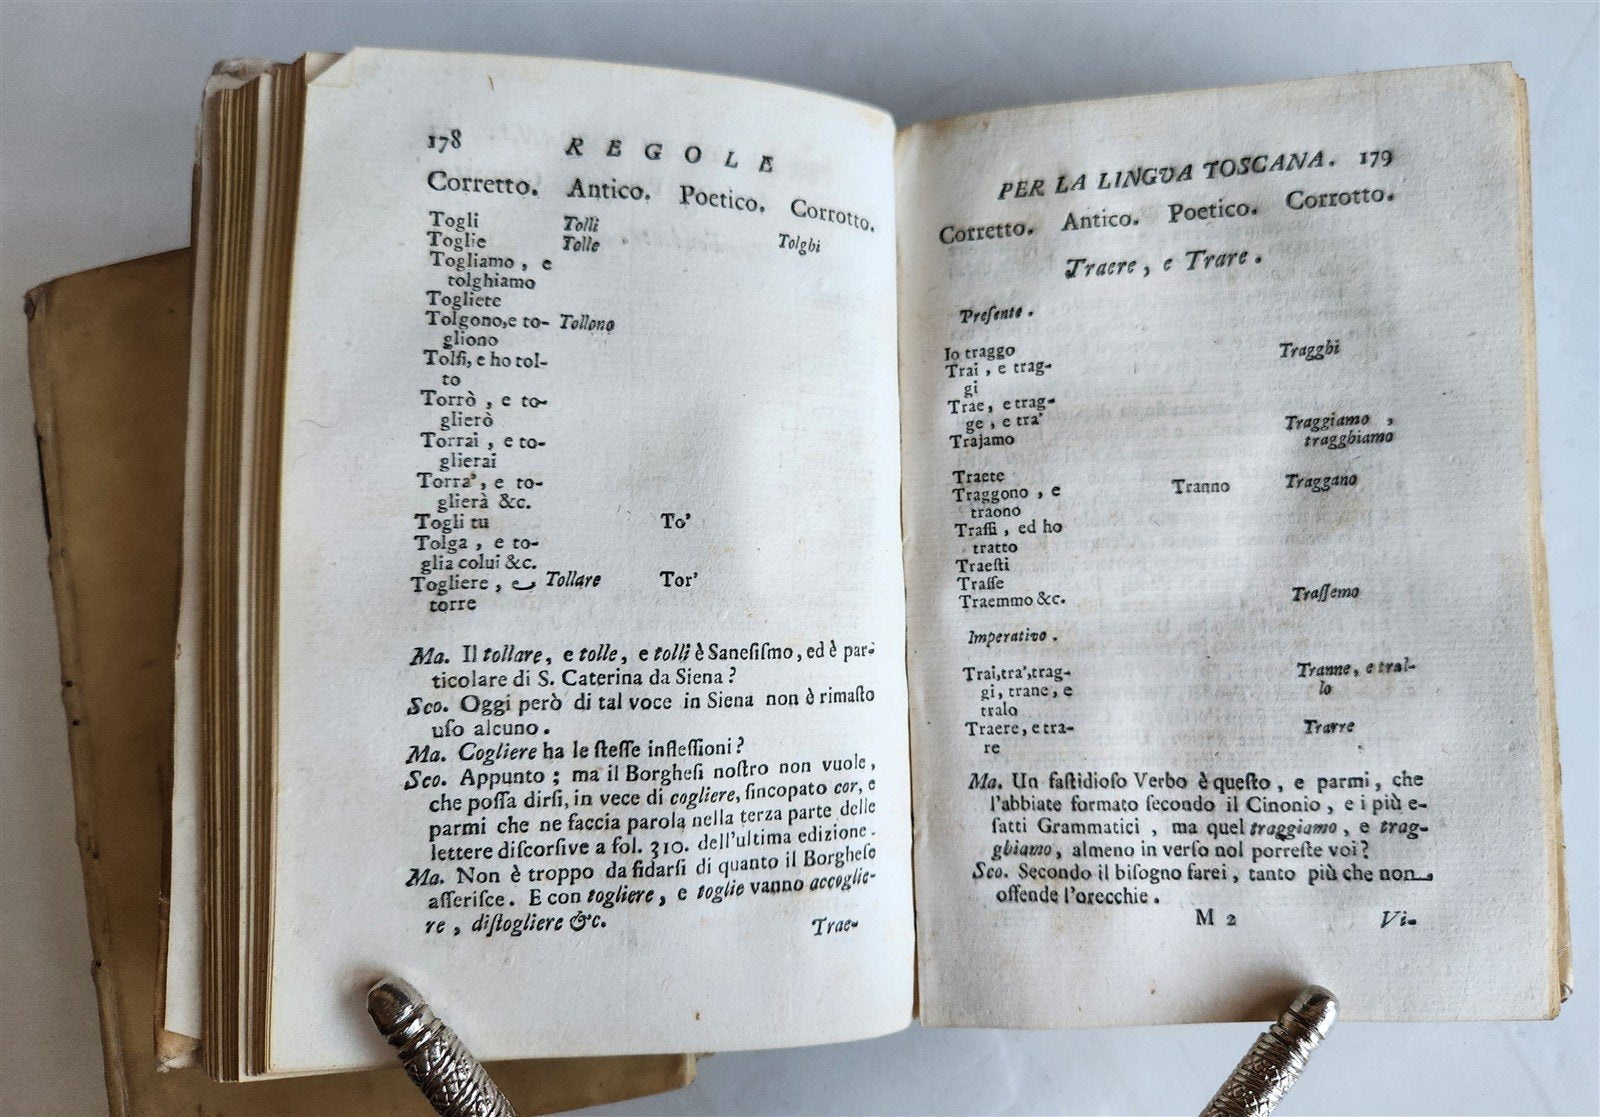 178 REGOLE
Corretto. Antico. Poetico. Corrotto.
Togli Tolli
Toglie Tolle Tolghi
Togliamo, e
tolghiamo
Togliete
Tolgono, e to- Tollono
gliono
Tolſi, e ho tol-
to
Torrò, e to-
glierò
Torrai, e to-
glierai
Torra', e to-
glierà &c.
Togli tu To'
Tolga, e to-
glia colui &c.
Togliere, e Tollare Tor'
torre
Ma. Il tollare, e tolle, e tolli è Saneſiſmo, ed è par-
ticolare di S. Caterina da Siena?
Sco. Oggi però di tal voce in Siena non è rimaſto
uſo alcuno.
Ma. Cogliere ha le ſteſſe infleſſioni?
Sco. Appunto; ma il Borgheſi noſtro non vuole,
che poſſa dirſi, in vece di cogliere, ſincopato cor, e
parmi che ne faccia parola nella terza parte delle
lettere diſcorſive a fol. 310. dell'ultima edizione.
Ma. Non è troppo da fidarſi di quanto il Borgheſe
aſſeriſce. E con togliere, e toglie vanno accoglie-
re, diſtogliere &c.
Trae-
PER LA LINGVA TOSCANA. 179
Corretto. Antico. Poetico. Corrotto.
Traere, e Trare.
Preſente.
Io traggo Tragghi
Trai, e trag-
gi
Trae, e trag-
ge, e tra' Traggiamo,
Trajamo tragghiamo
Traete
Traggono, e Tranno Traggano
traono
Traſſi, ed ho
tratto
Traeſti
Traſſe
Traemmo &c. Traſſemo
Imperativo.
Trai, tra', trag- Tranne, e tral-
gi, trane, e lo
tralo
Traere, e tra- Trarre
re
Ma. Un faſtidioſo Verbo è queſto, e parmi, che
l'abbiate formato ſecondo il Cinonio, e i più e-
ſatti Grammatici, ma quel traggiamo, e trag-
ghiamo, almeno in verſo nol porreſte voi?
Sco. Secondo il biſogno farei, tanto più che non
offende l'orecchie.
M 2 Vi-